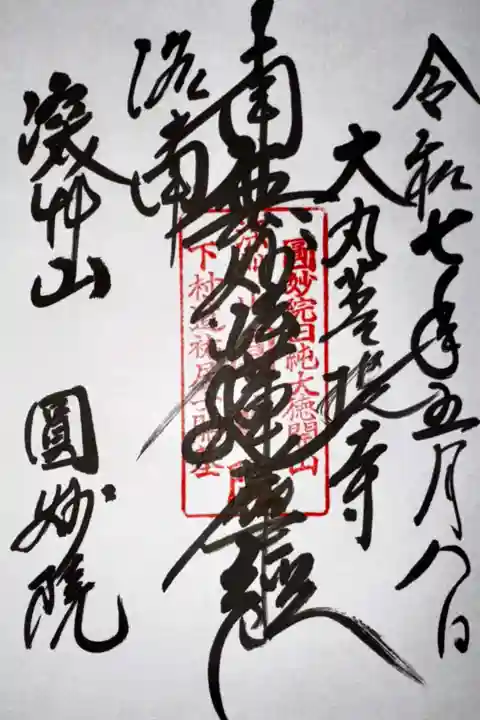 令和七年五月八日
大丸菩提寺
南無妙法蓮華経
圓妙院日純大徳開山
洛南
深草山 圓妙院